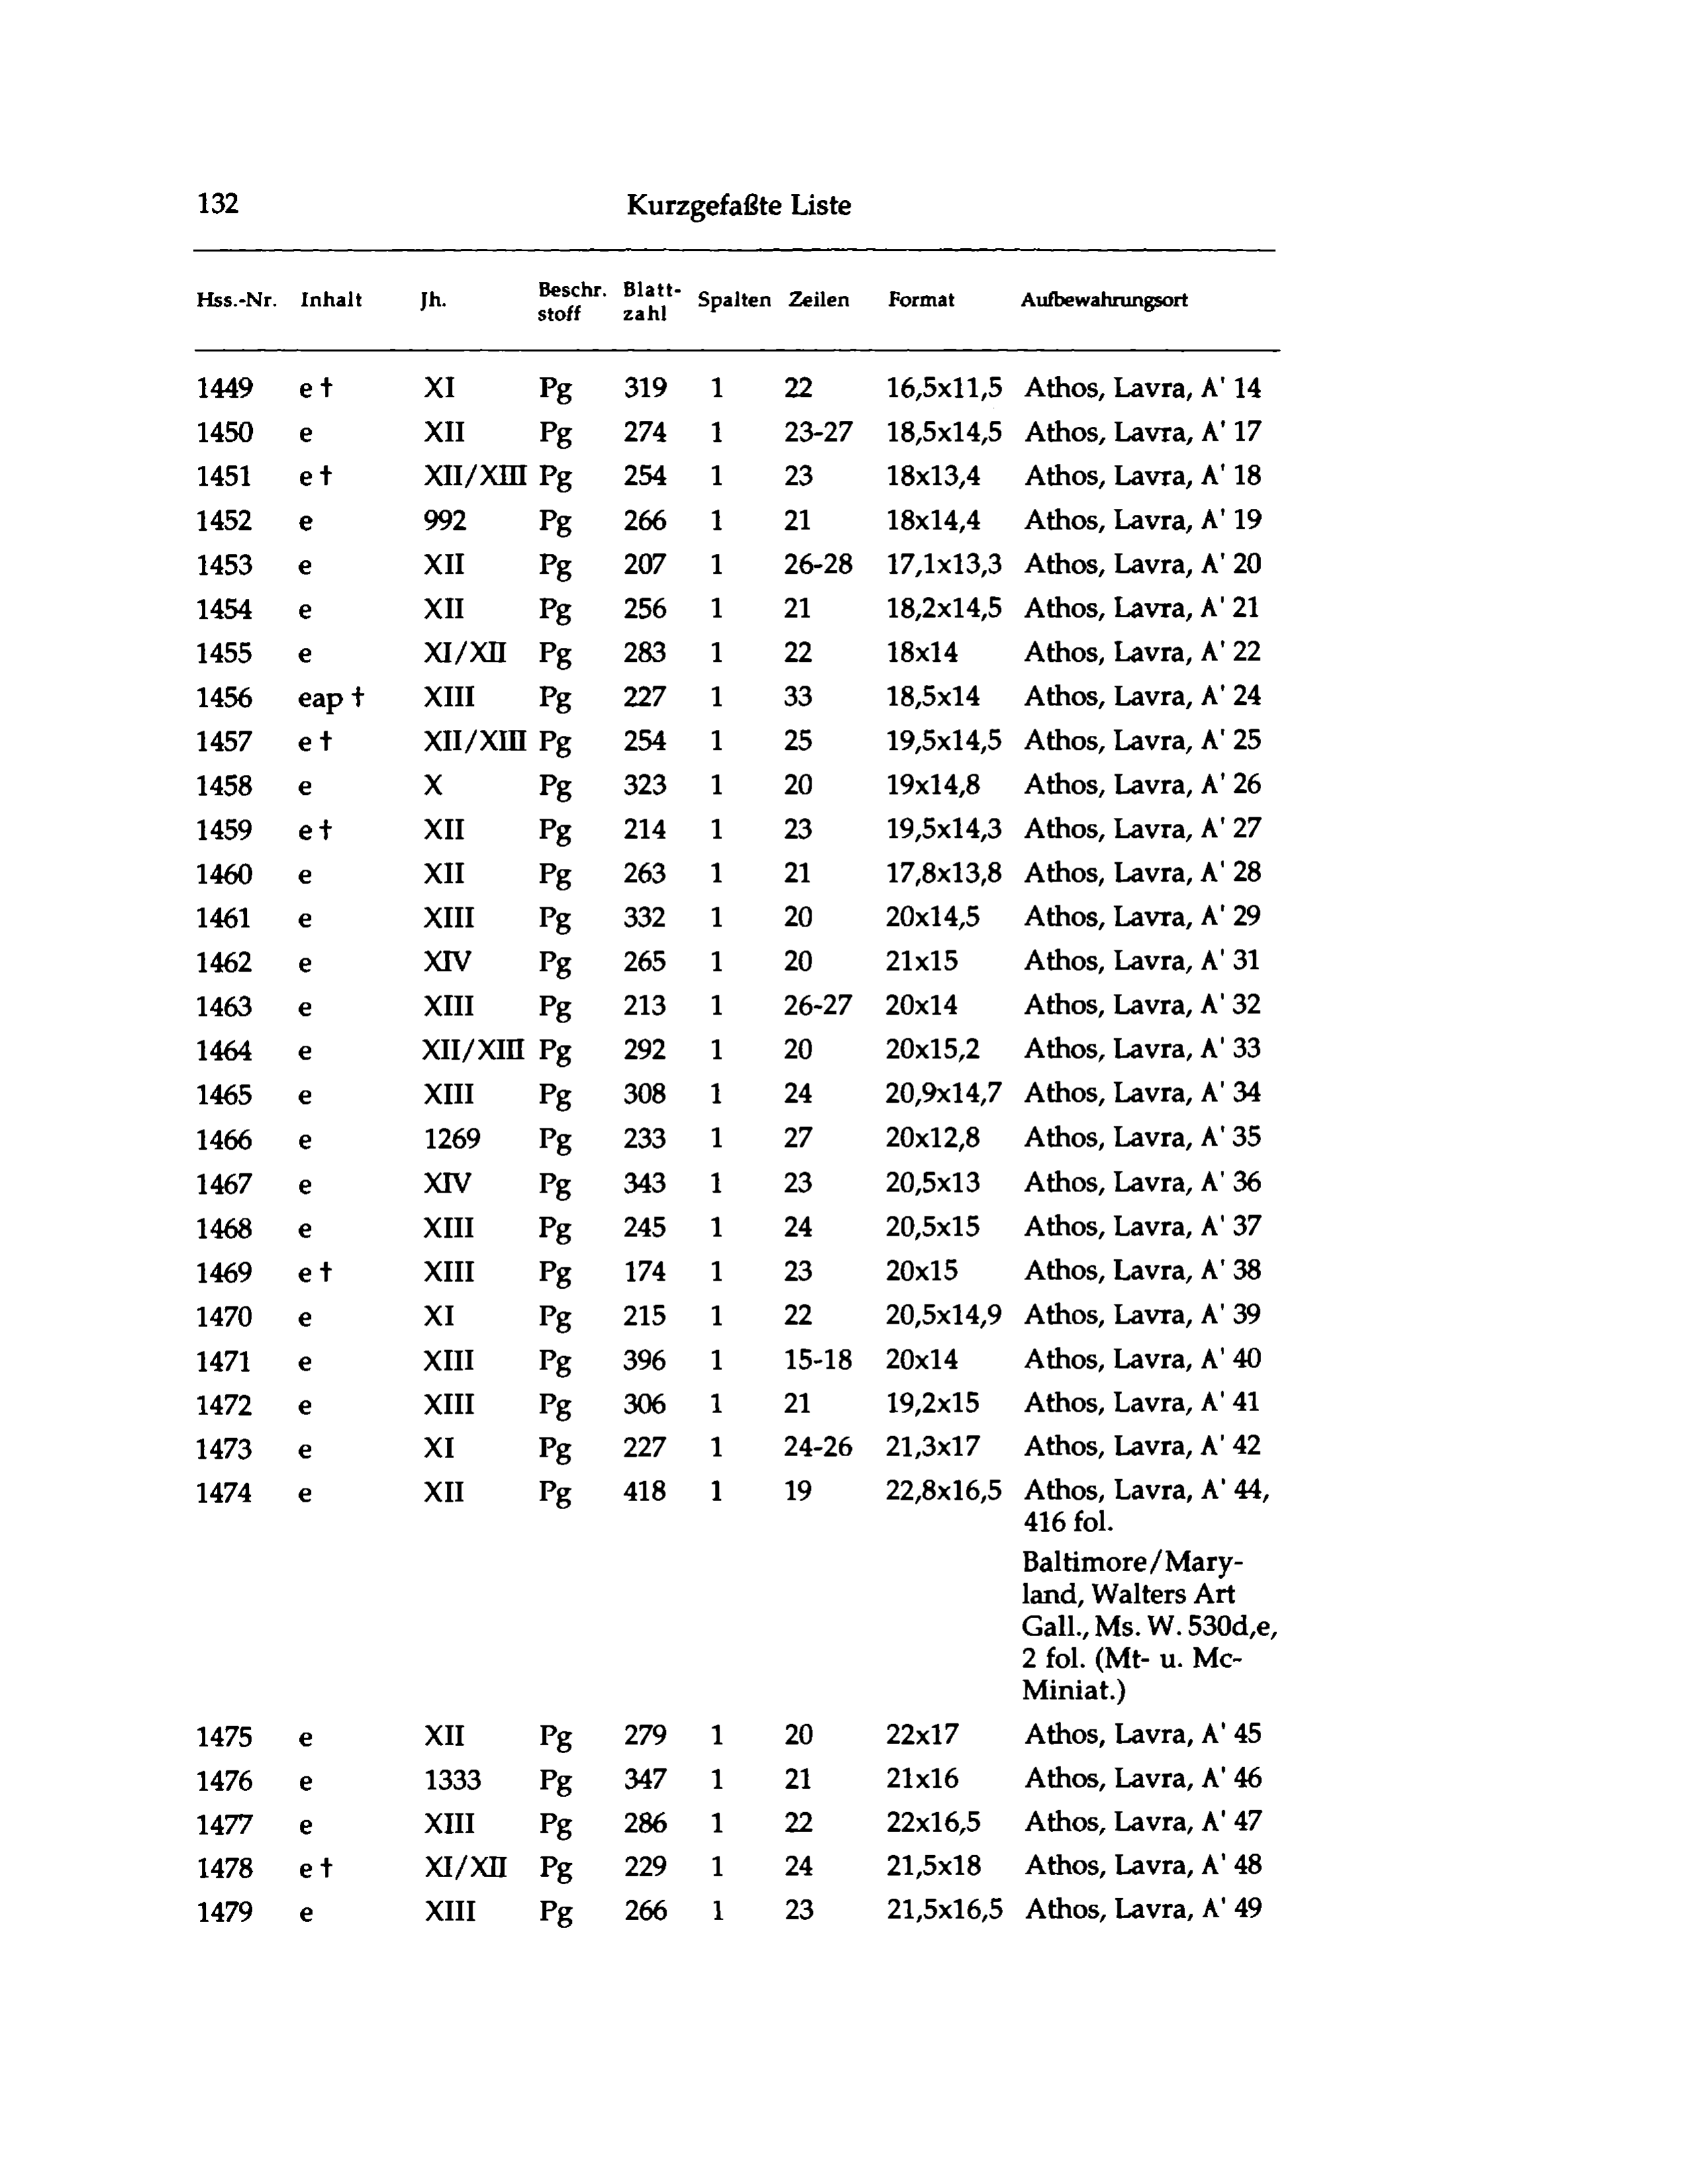 132 Kurzgefaßte Liste
Hss.-Nr. Inhalt Jh. Beschr. stoff Blatt- zahl Spalten Zeilen Format Aufbewahrungsort
1449 e † XI Pg 319 1 22 16,5x11,5 Athos, Lavra, A' 14
1450 e XII Pg 274 1 23-27 18,5x14,5 Athos, Lavra, A' 17
1451 e † XII/XIII Pg 254 1 23 18x13,4 Athos, Lavra, A' 18
1452 e 992 Pg 266 1 21 18x14,4 Athos, Lavra, A' 19
1453 e XII Pg 207 1 26-28 17,1x13,3 Athos, Lavra, A' 20
1454 e XII Pg 256 1 21 18,2x14,5 Athos, Lavra, A' 21
1455 e XI/XII Pg 283 1 22 18x14 Athos, Lavra, A' 22
1456 eap † XIII Pg 227 1 33 18,5x14 Athos, Lavra, A' 24
1457 e † XII/XIII Pg 254 1 25 19,5x14,5 Athos, Lavra, A' 25
1458 e X Pg 323 1 20 19x14,8 Athos, Lavra, A' 26
1459 e † XII Pg 214 1 23 19,5x14,3 Athos, Lavra, A' 27
1460 e XII Pg 263 1 21 17,8x13,8 Athos, Lavra, A' 28
1461 e XIII Pg 332 1 20 20x14,5 Athos, Lavra, A' 29
1462 e XIV Pg 265 1 20 21x15 Athos, Lavra, A' 31
1463 e XIII Pg 213 1 26-27 20x14 Athos, Lavra, A' 32
1464 e XII/XIII Pg 292 1 20 20x15,2 Athos, Lavra, A' 33
1465 e XIII Pg 308 1 24 20,9x14,7 Athos, Lavra, A' 34
1466 e 1269 Pg 233 1 27 20x12,8 Athos, Lavra, A' 35
1467 e XIV Pg 343 1 23 20,5x13 Athos, Lavra, A' 36
1468 e XIII Pg 245 1 24 20,5x15 Athos, Lavra, A' 37
1469 e † XIII Pg 174 1 23 20x15 Athos, Lavra, A' 38
1470 e XI Pg 215 1 22 20,5x14,9 Athos, Lavra, A' 39
1471 e XIII Pg 396 1 15-18 20x14 Athos, Lavra, A' 40
1472 e XIII Pg 306 1 21 19,2x15 Athos, Lavra, A' 41
1473 e XI Pg 227 1 24-26 21,3x17 Athos, Lavra, A' 42
1474 e XII Pg 418 1 19 22,8x16,5 Athos, Lavra, A' 44,
416 fol.
Baltimore/Mary-
land, Walters Art
Gall., Ms. W. 530d,e,
2 fol. (Mt- u. Mc-
Miniat.)
1475 e XII Pg 279 1 20 22x17 Athos, Lavra, A' 45
1476 e 1333 Pg 347 1 21 21x16 Athos, Lavra, A' 46
1477 e XIII Pg 286 1 22 22x16,5 Athos, Lavra, A' 47
1478 e † XI/XII Pg 229 1 24 21,5x18 Athos, Lavra, A' 48
1479 e XIII Pg 266 1 23 21,5x16,5 Athos, Lavra, A' 49